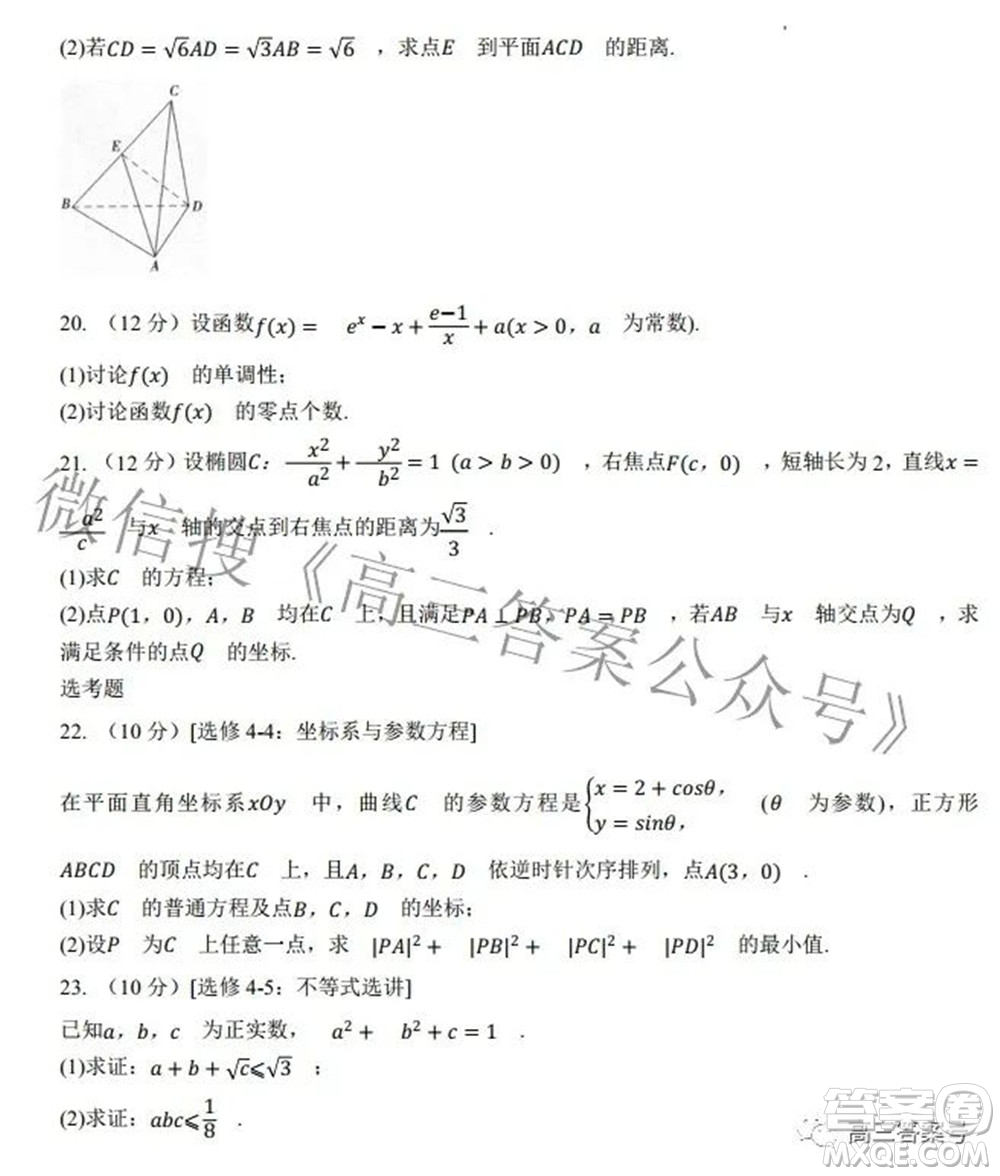 (2)若CD=√6AD=√3AB=√6 ，求点E 到平面ACD 的距离.
C
E
B
D
A
20. （12 分）设函数f(x)= e^x−x+(e−1)/x+a(x>0，a 为常数).
(1)讨论f(x) 的单调性；
(2)讨论函数f(x) 的零点个数.
21. （12 分）设椭圆C： x²/a²+ y²/b²=1 (a>b>0) ，右焦点F(c，0) ，短轴长为 2，直线x=
a²/c 与x 轴的交点到右焦点的距离为√3/3 .
(1)求C 的方程；
(2)点P(1，0)，A，B 均在C 上，且满足PA⊥PB，PA=PB ，若AB 与x 轴交点为Q ，求
满足条件的点Q 的坐标.
选考题
22. （10 分）[选修 4-4：坐标系与参数方程]
在平面直角坐标系xOy 中，曲线C 的参数方程是{x=2+cosθ， y=sinθ， (θ 为参数)，正方形
ABCD 的顶点均在C 上，且A，B，C，D 依逆时针次序排列，点A(3，0) .
(1)求C 的普通方程及点B，C，D 的坐标；
(2)设P 为C 上任意一点，求 |PA|²+ |PB|²+ |PC|²+ |PD|² 的最小值.
23. （10 分）[选修 4-5：不等式选讲]
已知a，b，c 为正实数， a²+ b²+c=1 .
(1)求证：a+b+√c⩽√3 ；
(2)求证：abc⩽1/8 .
微信搜《高三答案公众号》
高三答案号
答案圈
MXQE.COM